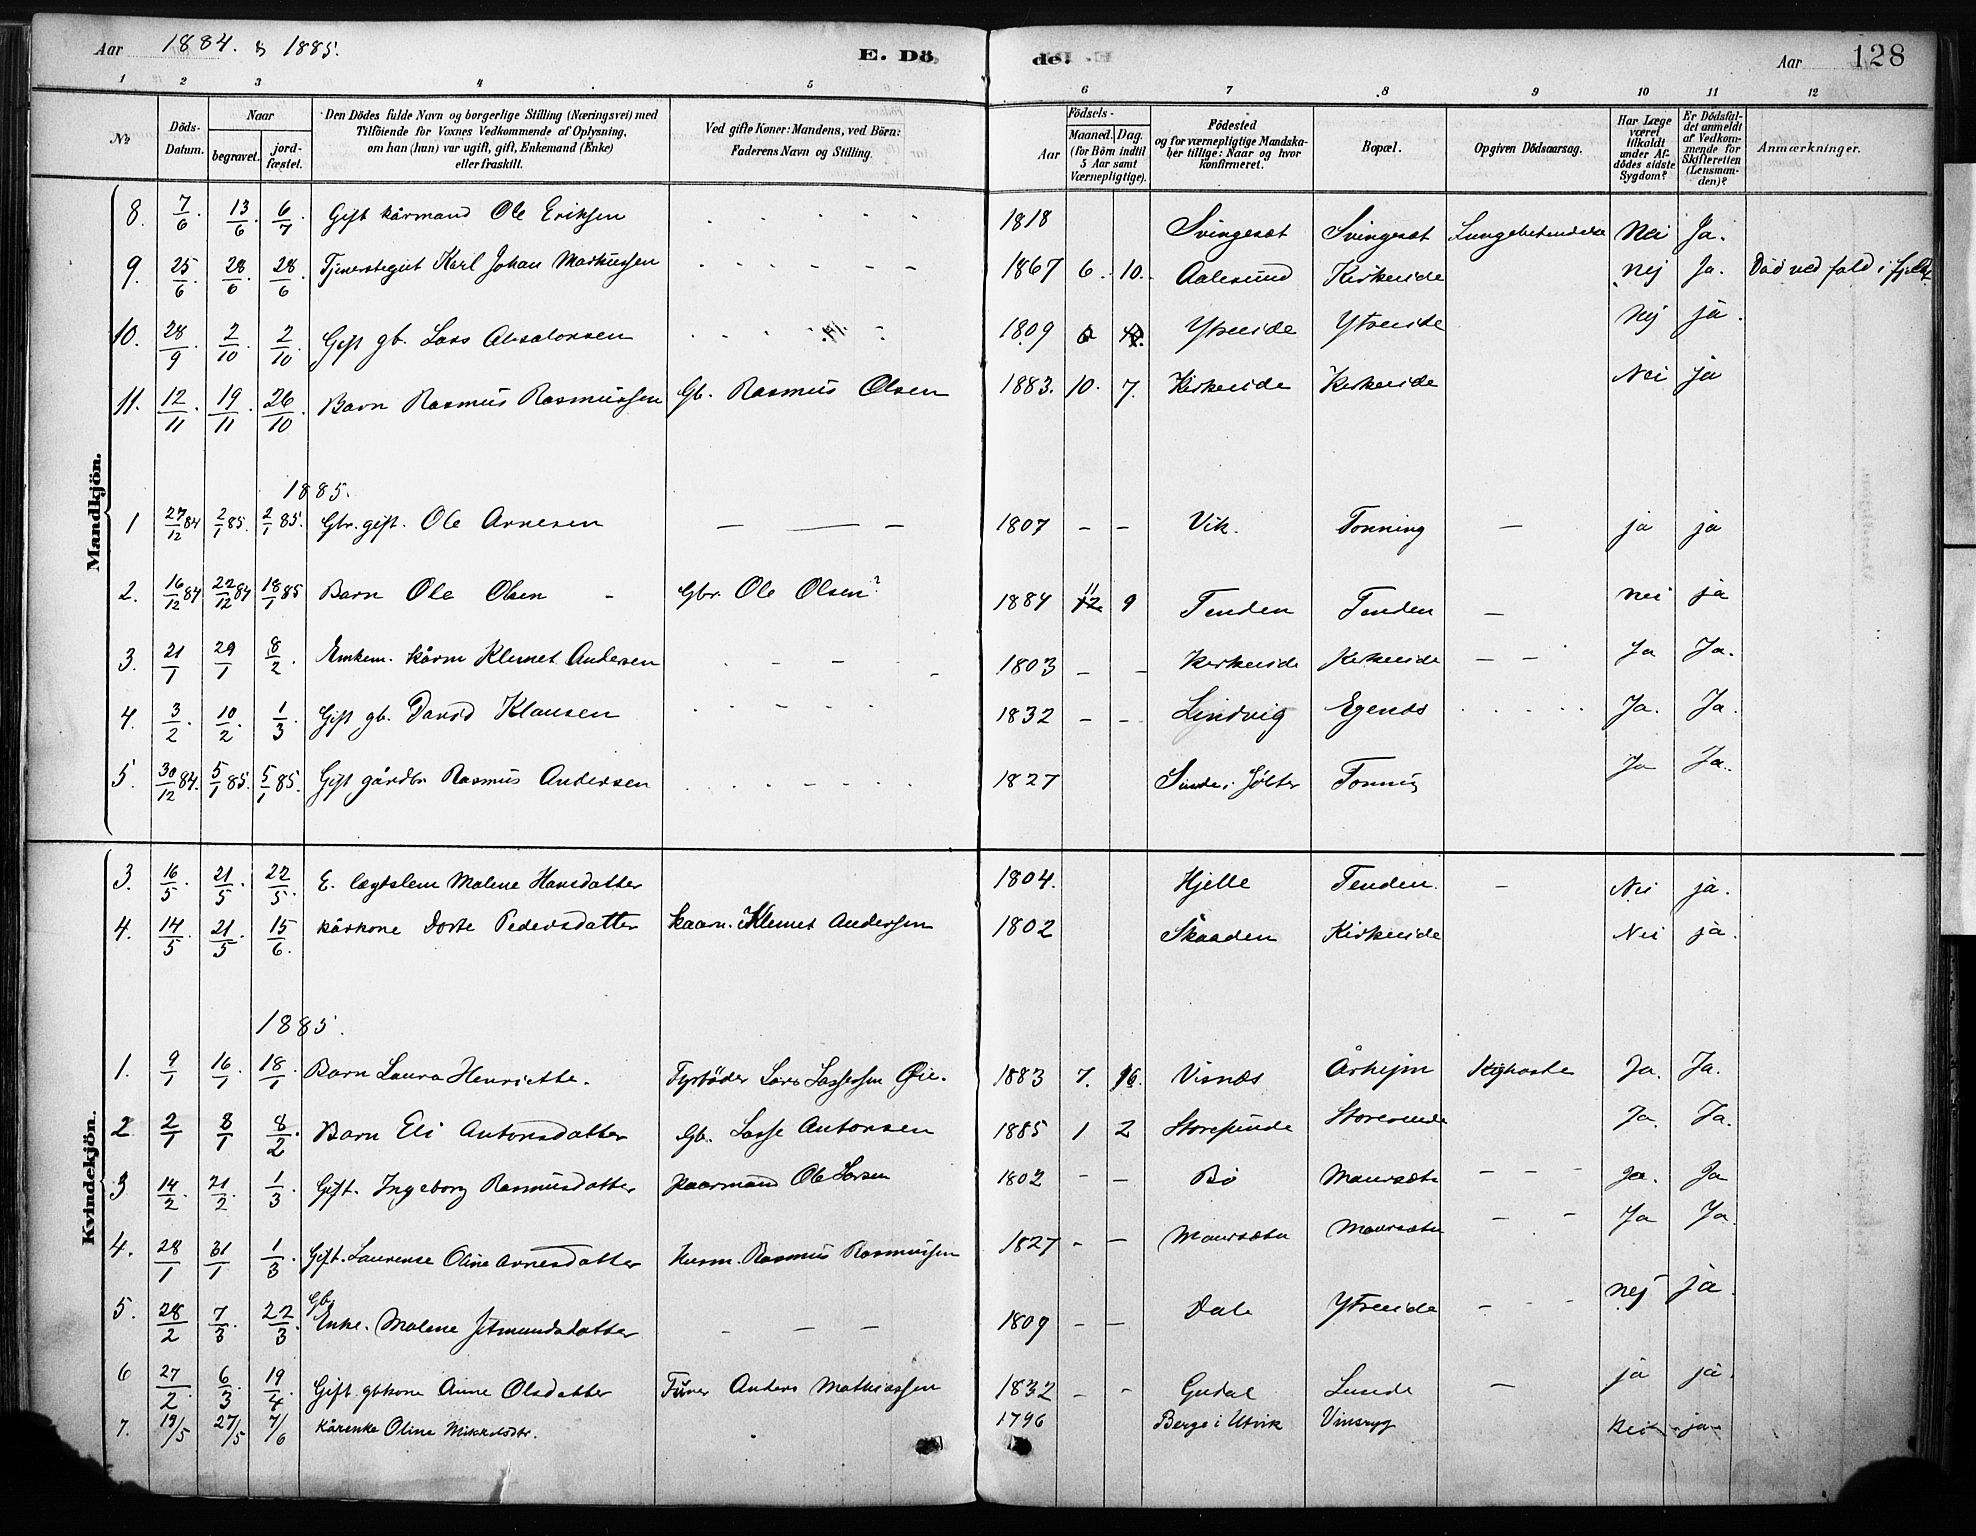 Aar 1884. & 1885. E. Dö de. Aar 128
1 2 3 4 5 6 7 8 9 10 11 12
No Döds-Datum. Naar begravet. jord-fæstet. Den Dödes fulde Navn og borgerlige Stilling (Næringsvei) med Tilföiende for Voxnes Vedkommende af Oplysning, om han (hun) var ugift, gift, Enkemand (Enke) eller fraskilt. Ved gifte Koner: Mandens, ved Börn: Faderens Navn og Stilling. Födsels- Aar Maaned. Dag. (for Börn indtil 5 Aar samt Værnepligtige). Födested og for værnepligtige Mandska-ber tillige: Naar og hvor konfirmeret. Bopæl. Opgiven Dödsaarsag. Har Læge været tilkaldt under Af-dödes sidste Sygdom? Er Dödsfal-det anmeldt af Vedkom-mende for Skifteretten (Lensman-den)? Anmærkninger.
Mandkjön.
8. 7/6. 13/6. 6/7 Gift kårmand Ole Eriksen 1818 Svingesæt Svingesæt Lungebetendelse Nei Ja.
9. 25/6 28/6 28/6 Tjenestegut Karl Johan Markussen 1867 6. 10. Aalesund Kirkeeide nej Ja. Död ved fald i fjeldet
10. 28/9 2/10 2/10 Gift gb. Lars Absalonsen 1809 Ytreeide Ytreeide Nej ja.
11. 12/11 19/11 26/10 Barn Rasmus Rasmussen Gb. Rasmus Olsen 1883. 10. 7. Kirkeeide Kirkeeide Nei ja
1885.
1 27/12 84 2/1 85. 2/1 85. Gbr. gift. Ole Arnesen — — — 1807 – – Vik. Tonning — ja ja
2. 16/12 84 22/12 84 18/1 85 Barn Ole Olsen Gbr. Ole Olsen? 1884 11 12 9 Tenden Tenden — nei ja
3. 21/1 29/1 8/2. Enkem. kårm Klemet Andersen 1803 – – Kirkeeide Kirkeeide – – Ja Ja.
4. 3/2. 10/2. 1/3. Gift gb. David Klausen 1832 – – Lindvig Egenes Ja. Ja.
5. 30/12 84. 5/1 85. 5/1 85. Gift gårdbr Rasmus Andersen 1827 Sunde i Jölster Tonning Ja Ja.
Kvindekjön.
3. 16/5. 21/5. 22/5. E. lægtslem Malene Hansdatter 1804. Hjelle Tenden. – Nei ja.
4. 14/5. 21/5. 15/6. kårkone Dorte Pedersdatter kaarm. Klemet Andersen 1802 Skaaden Kirkeeide Nei ja.
1885.
1. 9/1 16/1 18/1. Barn Laura Henriette. Fyrböder Lars Lassesen Øie. 1883 7. 16. Visnæs Årheim Kighoste Ja. Ja.
2 2/1 8/1 8/2. Barn Eli Antonsdatter Gb. Lasse Antonsen 1885 1 2 Storesunde Storesunde Ja. Ja.
3 14/2. 21/2. 1/3. Gift. Ingeborg Rasmusdatter kaarmand Ole Larsen 1802 – – Bö Maursæte – – – Ja. Ja
4. 28/1 31/1 1/3. Gift. Laurense Oline Arnesdatter Husm. Rasmus Rasmussen 1827 – – Maursæte Maursæte – – – Ja Ja.
5. 28/2 7/3 22/3. Gb. Enke. Malene Jetmundsdatter – – – 1809 – – Dale Ytreeide – – – nej ja.
6 27/2. 6/3 19/4 Gift gbkone Anne Olsdatter Anders Mathiassen 1832 – – Gudal Lunde – ja ja.
7. 19/5 27/5 7/6 Kårenke Oline Mikkelsdtr. 1796 Berge i Utvik Vinsryg Nei ja